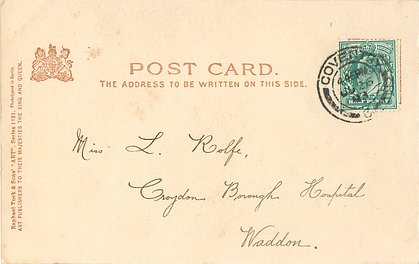 POST CARD.
THE ADDRESS TO BE WRITTEN ON THIS SIDE.
Raphael Tuck & Sons' "ART" Series 1151. Photographed in Berlin
ART PUBLISHERS TO THEIR MAJESTIES THE KING AND QUEEN.
Miss L. Rolfe,
Croydon Borough Hospital
Waddon.